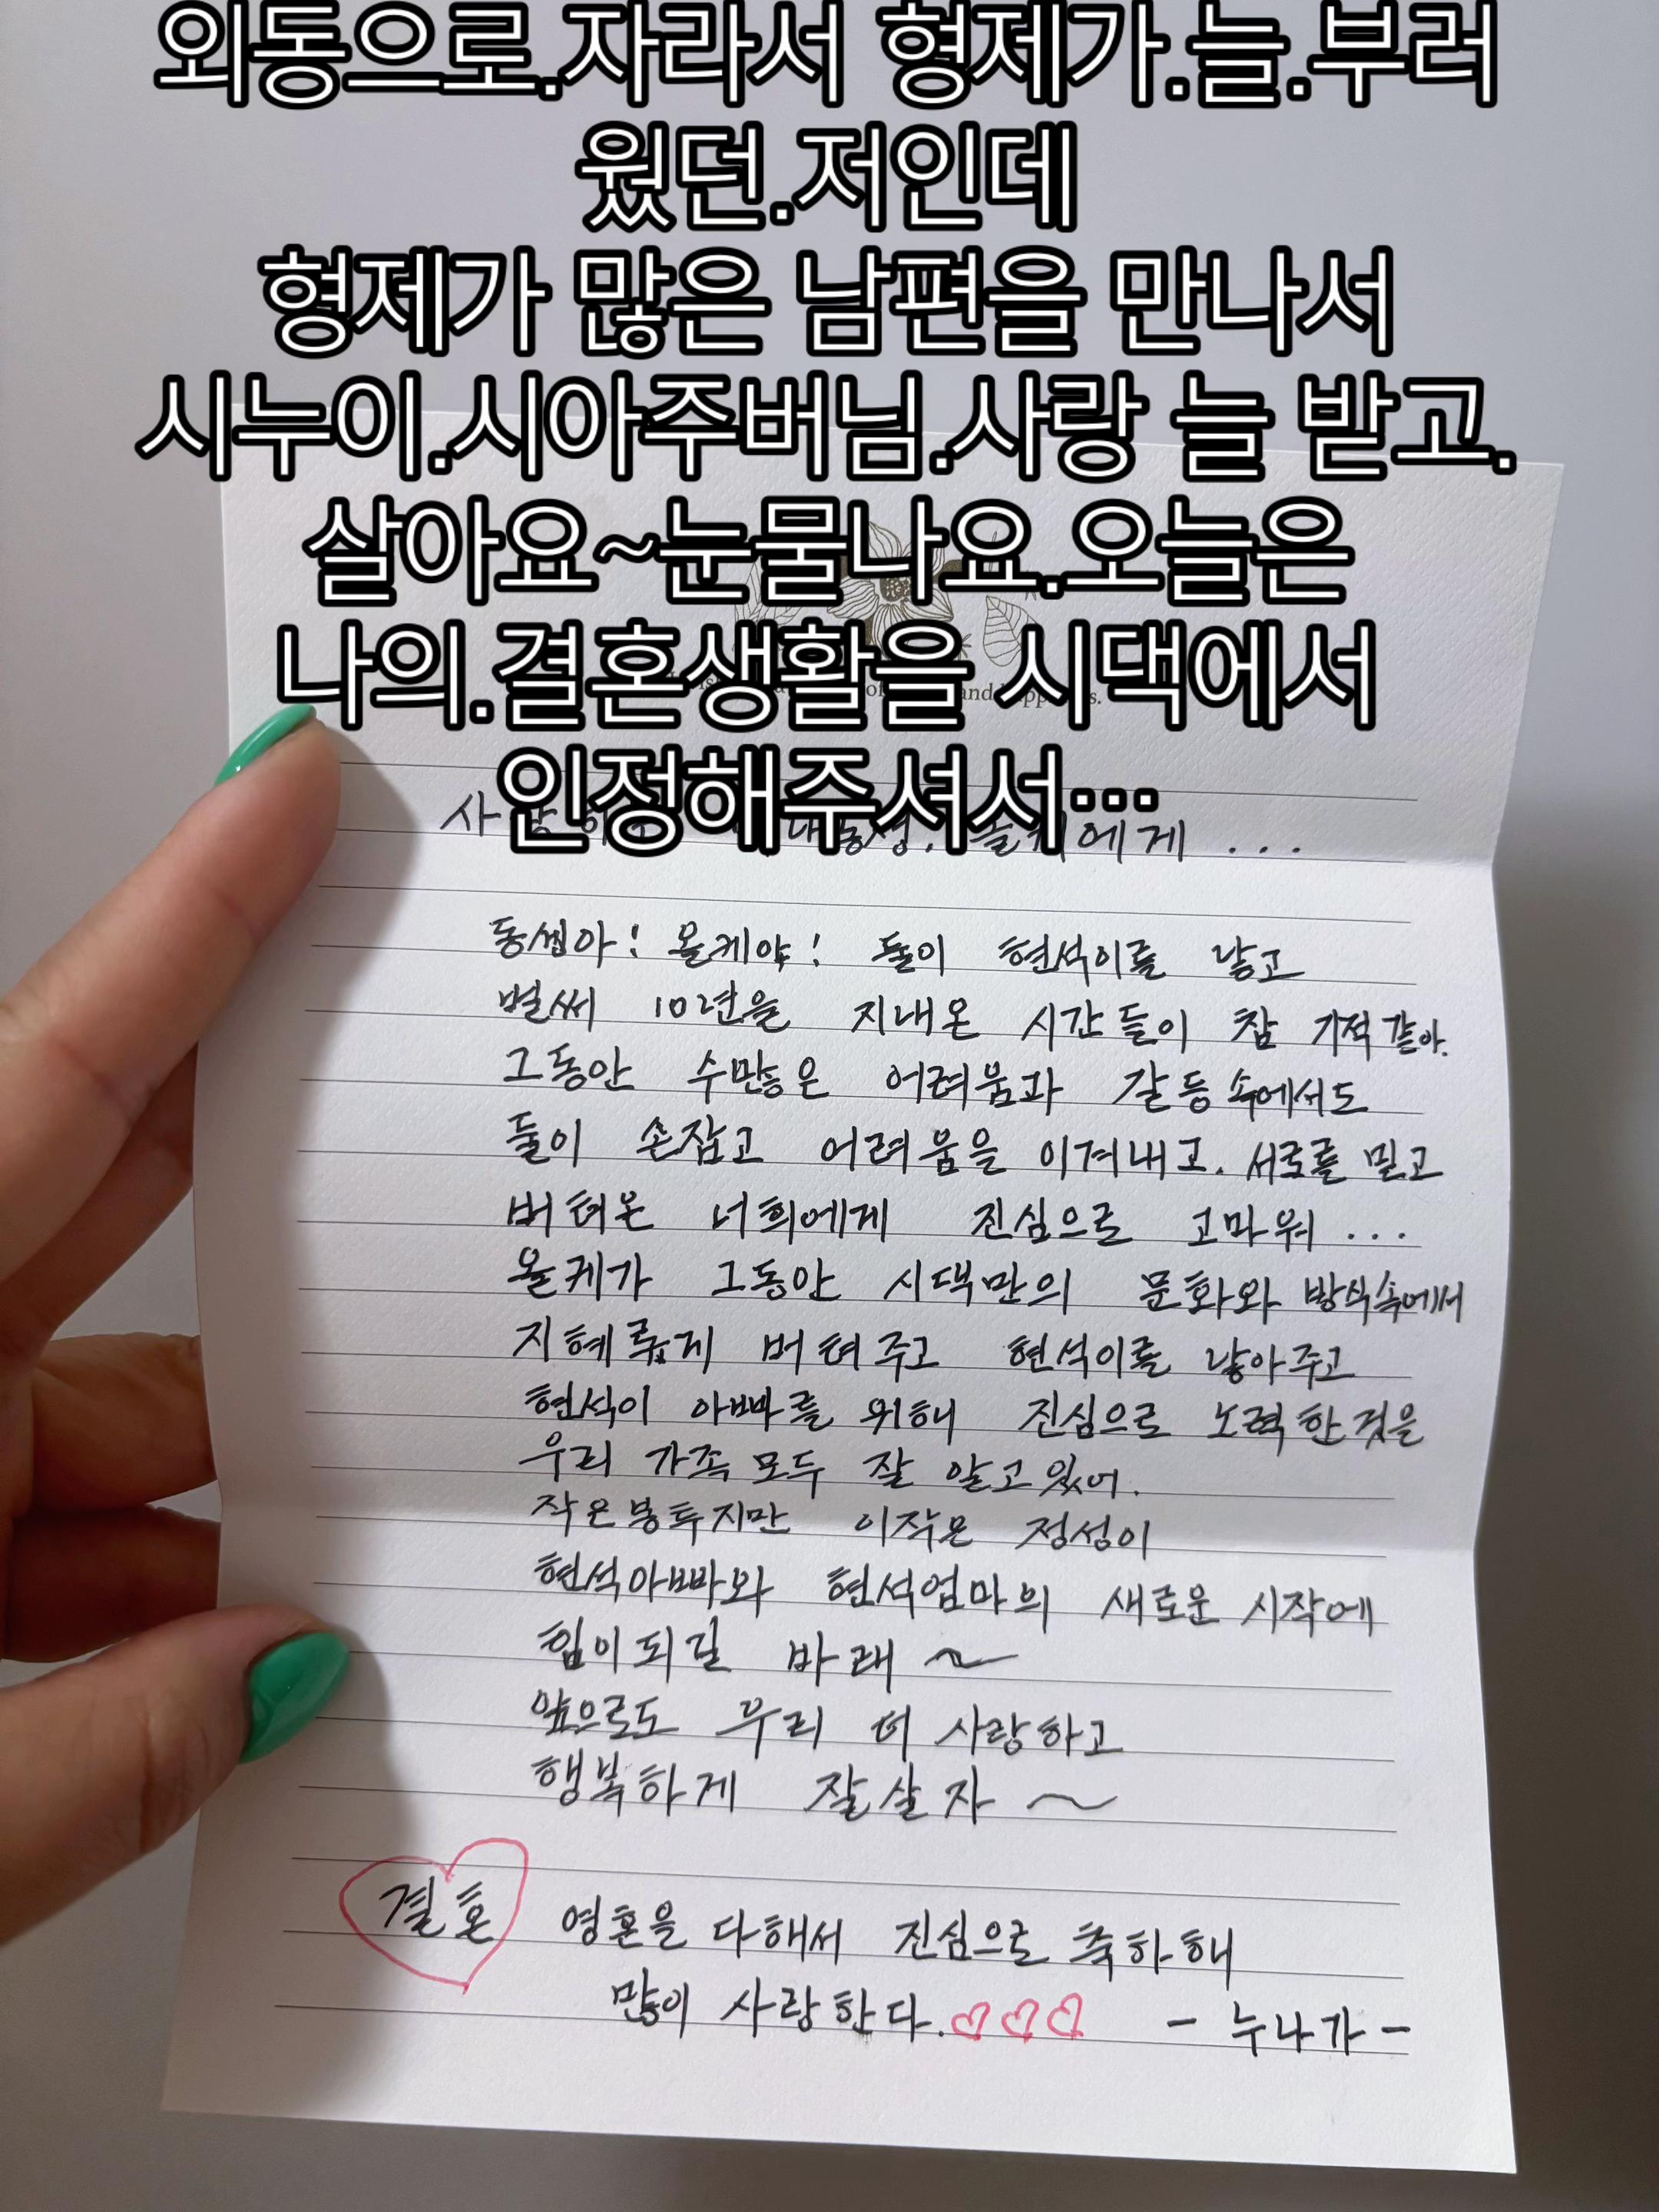 외동으로.자라서 형제가.늘.부러
웠던.저인데
형제가 많은 남편을 만나서
시누이.시아주버님.사랑 늘 받고.
살아요~눈물나요.오늘은
나의.결혼생활을 시댁에서
인정해주셔서…
에게 ...
동생아! 올케야! 둘이 현석이를 낳고
벌써 10년을 지내온 시간들이 참 기적같아.
그동안 수많은 어려움과 갈등속에서도
둘이 손잡고 어려움을 이겨내고. 서로를 믿고
버텨온 너희에게 진심으로 고마워 ...
올케가 그동안 시댁만의 문화와 방식속에서
지혜롭게 버텨주고 현석이를 낳아주고
현석이 아빠를 위해 진심으로 노력한것을
우리 가족모두 잘 알고있어.
작은봉투지만 이작은 정성이
현석아빠와 현석엄마의 새로운 시작에
힘이되길 바래 ~
앞으로도 우리 더 사랑하고
행복하게 잘살자 ~
결혼 영혼을 다해서 진심으로 축하해
많이 사랑한다.♡♡♡ - 누나가 -